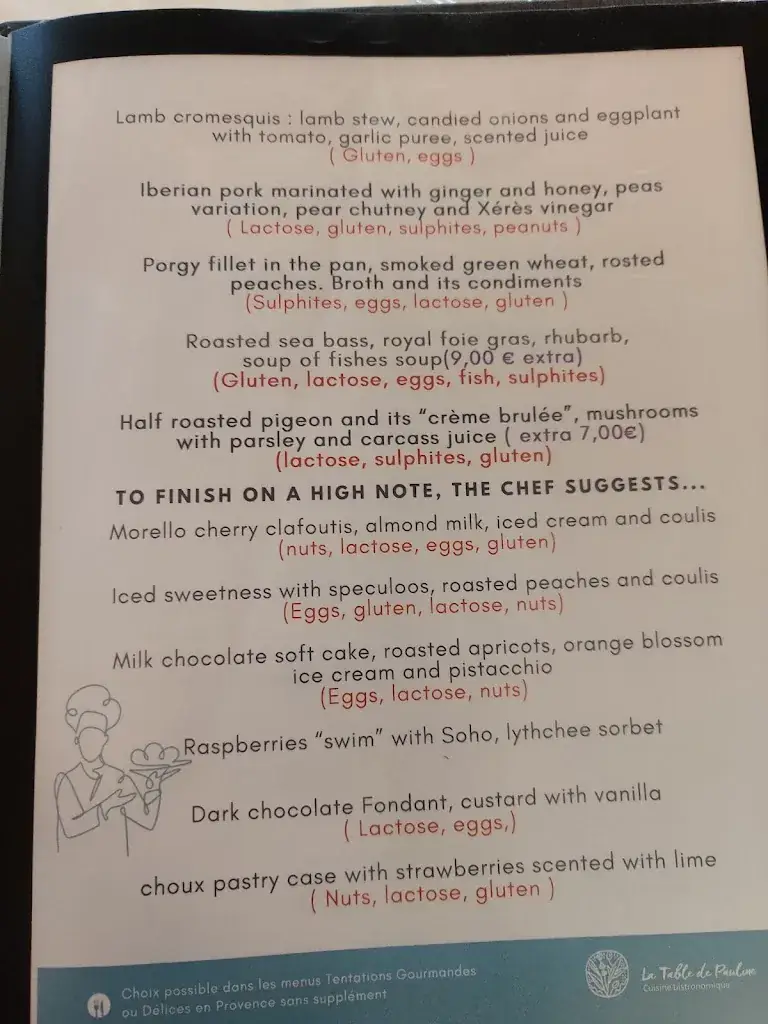 Lamb cromesquis : lamb stew, candied onions and eggplant
with tomato, garlic puree, scented juice
( Gluten, eggs )
Iberian pork marinated with ginger and honey, peas
variation, pear chutney and Xérès vinegar
( Lactose, gluten, sulphites, peanuts )
Porgy fillet in the pan, smoked green wheat, rosted
peaches. Broth and its condiments
(Sulphites, eggs, lactose, gluten )
Roasted sea bass, royal foie gras, rhubarb,
soup of fishes soup(9,00 € extra)
(Gluten, lactose, eggs, fish, sulphites)
Half roasted pigeon and its “crème brulée”, mushrooms
with parsley and carcass juice ( extra 7,00€)
(lactose, sulphites, gluten)
TO FINISH ON A HIGH NOTE, THE CHEF SUGGESTS...
Morello cherry clafoutis, almond milk, iced cream and coulis
(nuts, lactose, eggs, gluten)
Iced sweetness with speculoos, roasted peaches and coulis
(Eggs, gluten, lactose, nuts)
Milk chocolate soft cake, roasted apricots, orange blossom
ice cream and pistacchio
(Eggs, lactose, nuts)
Raspberries “swim” with Soho, lythchee sorbet
Dark chocolate Fondant, custard with vanilla
( Lactose, eggs,)
choux pastry case with strawberries scented with lime
( Nuts, lactose, gluten )
Choix possible dans les menus Tentations Gourmandes
ou Délices en Provence sans supplément
La Table de Pauline
Cuisine bistronomique